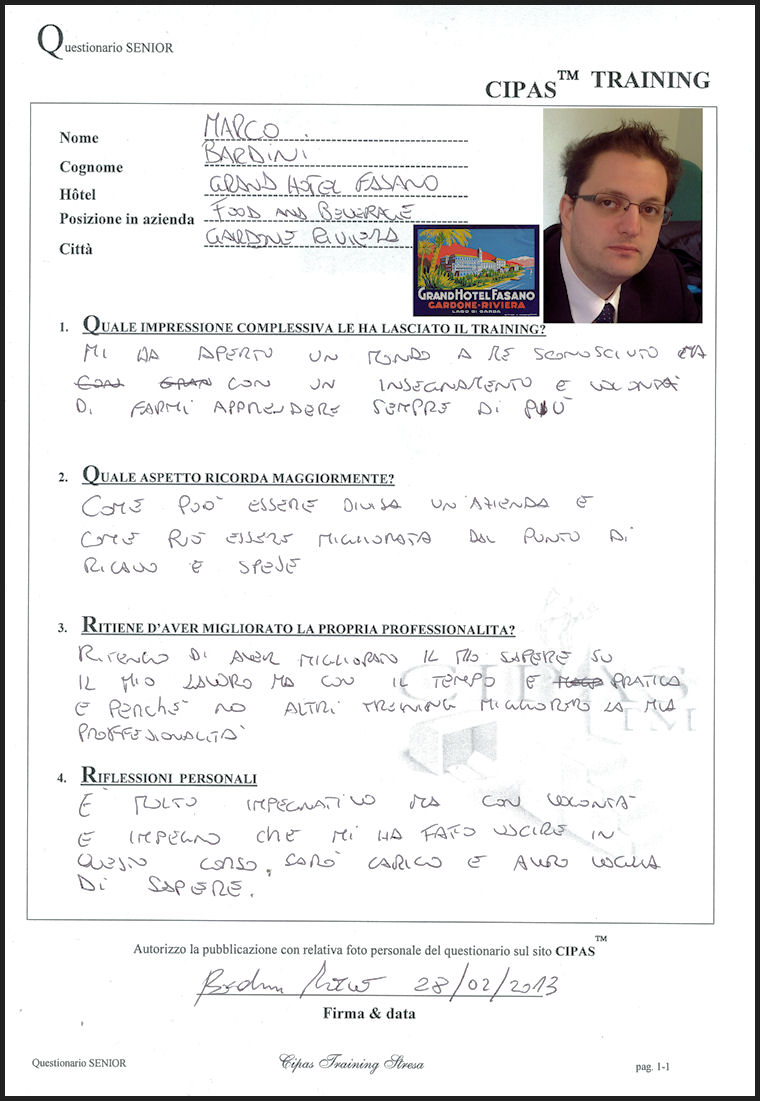 Questionario SENIOR
CIPAS™ TRAINING
Nome MARCO
Cognome BARDINI
Hôtel GRAND HOTEL FASANO
Posizione in azienda FOOD AND BEVERAGE
Città GARDONE RIVIERA
GRAND HOTEL FASANO
GARDONE-RIVIERA
LAGO DI GARDA
1. QUALE IMPRESSIONE COMPLESSIVA LE HA LASCIATO IL TRAINING?
MI HA APERTO UN MONDO A ME SCONOSCIUTO MA
CON GRAN CON UN INSEGNAMENTO E VOLONTA'
DI FARMI APPRENDERE SEMPRE DI PIÙ
2. QUALE ASPETTO RICORDA MAGGIORMENTE?
COME PUO' ESSERE DIVISA UN'AZIENDA E
COME PUÒ ESSERE MIGLIORATA DAL PUNTO DI
RICAVO E SPESE
3. RITIENE D'AVER MIGLIORATO LA PROPRIA PROFESSIONALITA?
RITENGO DI AVER MIGLIORATO IL MIO SAPERE SU
IL MIO LAVORO MA CON IL TEMPO E PRATICA
E PERCHE' NO ALTRI TREINING MIGLIORERO LA MIA
PROFFESSIONALITA'
CIPAS
TM
4. RIFLESSIONI PERSONALI
E' MOLTO IMPEGNATIVO MA CON VOLONTA'
E IMPEGNO CHE MI HA FATO USCIRE IN
QUESTO CORSO, SARO' CARICO E AVRO VOGLIA
DI SAPERE.
Autorizzo la pubblicazione con relativa foto personale del questionario sul sito CIPAS™
28/02/2013
Firma & data
Questionario SENIOR
Cipas Training Stresa
pag. 1-1